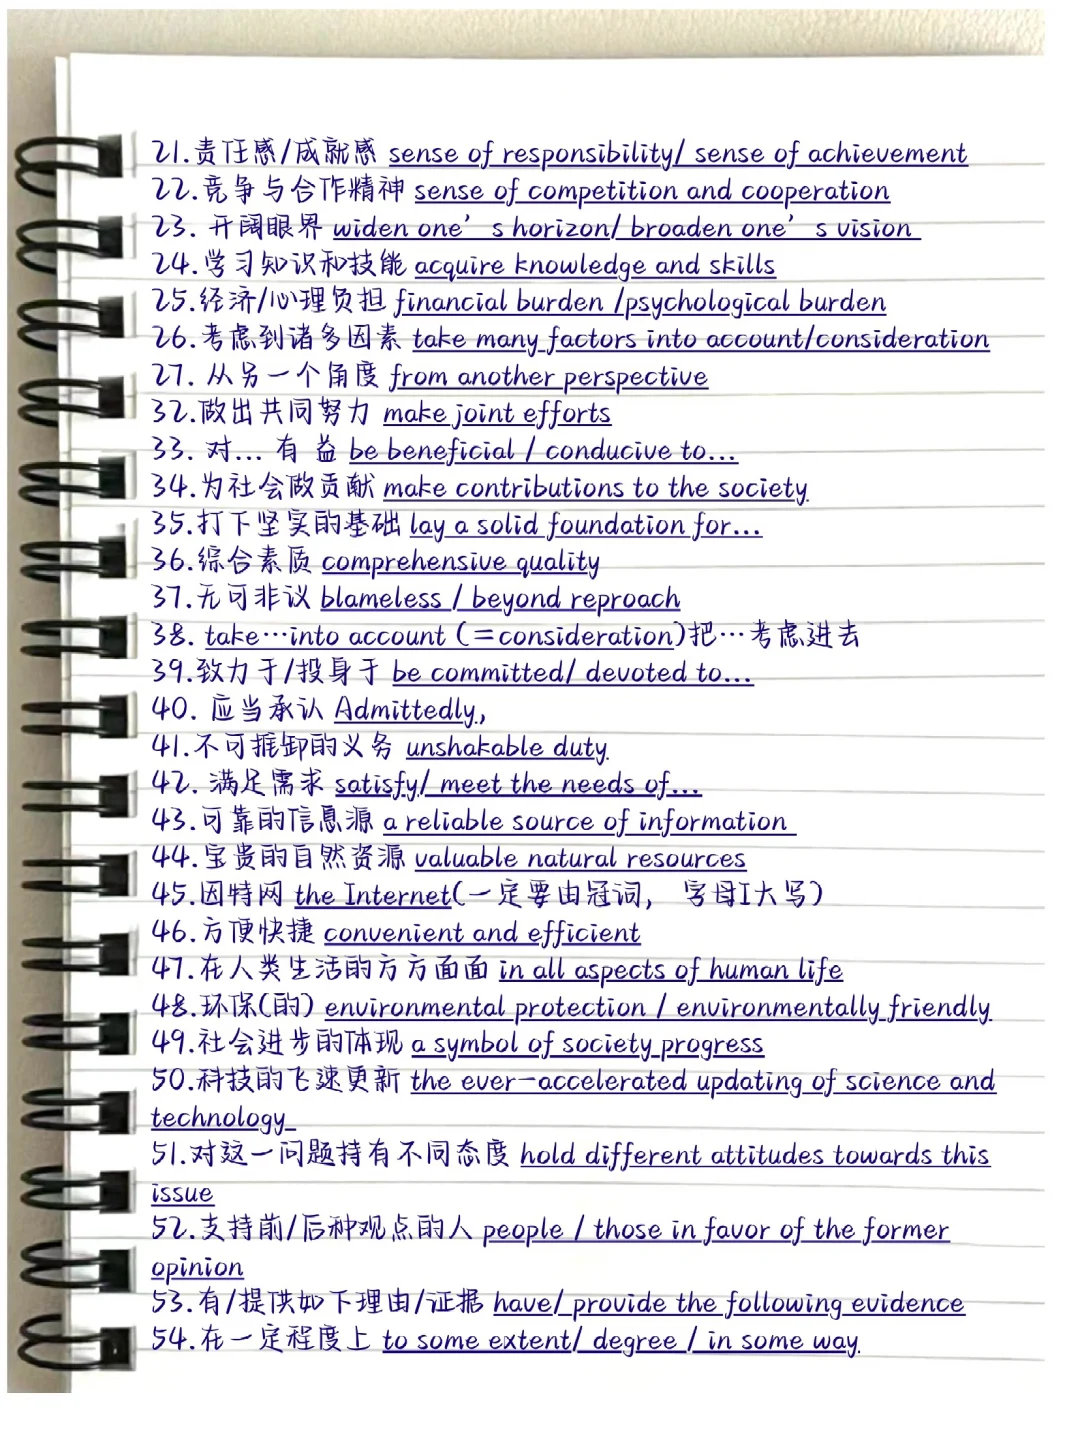 21.责任感/成就感 sense of responsibility/ sense of achievement
22.竞争与合作精神 sense of competition and cooperation
23. 开阔眼界 widen one’s horizon/ broaden one’s vision
24.学习知识和技能 acquire knowledge and skills
25.经济/心理负担 financial burden /psychological burden
26.考虑到诸多因素 take many factors into account/consideration
27. 从另一个角度 from another perspective
32.做出共同努力 make joint efforts
33. 对… 有 益 be beneficial / conducive to…
34.为社会做贡献 make contributions to the society
35.打下坚实的基础 lay a solid foundation for…
36.综合素质 comprehensive quality
37.无可非议 blameless / beyond reproach
38. take…into account (=consideration)把…考虑进去
39.致力于/投身于 be committed/ devoted to…
40. 应当承认 Admittedly,
41.不可推卸的义务 unshakable duty
42. 满足需求 satisfy/ meet the needs of…
43.可靠的信息源 a reliable source of information
44.宝贵的自然资源 valuable natural resources
45.因特网 the Internet(一定要由冠词, 字母I大写)
46.方便快捷 convenient and efficient
47.在人类生活的方方面面 in all aspects of human life
48.环保(的) environmental protection / environmentally friendly
49.社会进步的体现 a symbol of society progress
50.科技的飞速更新 the ever-accelerated updating of science and
technology
51.对这一问题持有不同态度 hold different attitudes towards this
issue
52.支持前/后种观点的人 people / those in favor of the former
opinion
53.有/提供如下理由/证据 have/ provide the following evidence
54.在一定程度上 to some extent/ degree / in some way